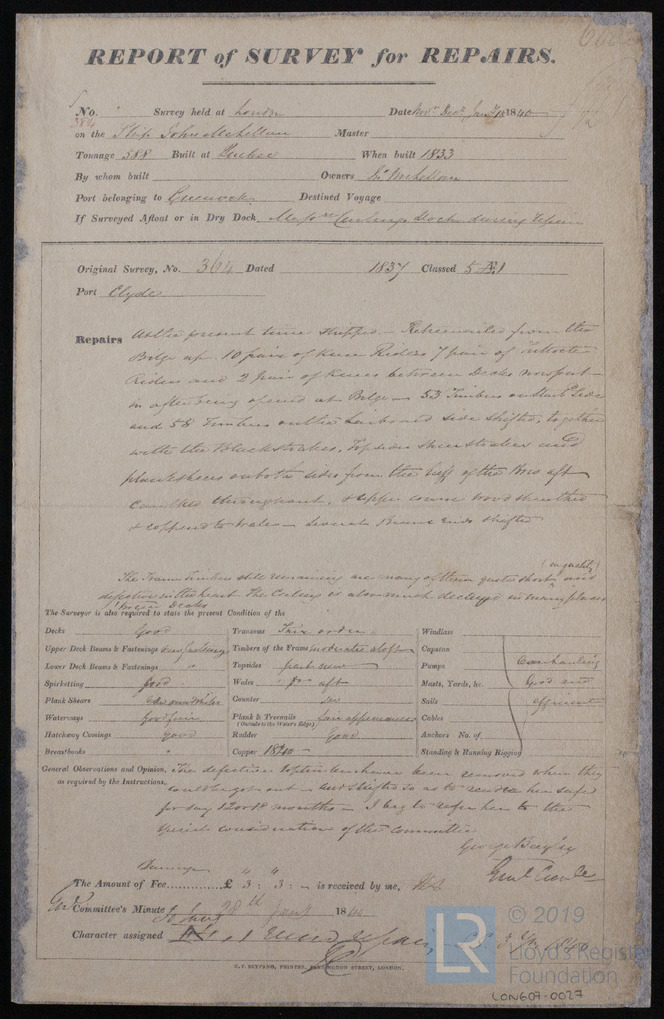 REPORT of SURVEY for REPAIRS.
No. 384 Survey held at London Date Novr Decr Jany 1840
on the Ship John McLellan Master
Tonnage 588 Built at Quebec When built 1833
By whom built Owners Jn McLellan
Port belonging to Greenock Destined Voyage
If Surveyed Afloat or in Dry Dock Messrs Curlings Dock during Repair
Original Survey, No. 364 Dated 1837 Classed 5 Æ1
Port Clyde
Repairs At the present time stripped - Retreenailed from the
Bilge up. 10 pair of Knee Riders 7 pair of Futtock
Riders and 2 pair of Knees between Decks now put
in after being opened at Bilge - 53 Timbers on Starbd side
and 58 Timbers on the Larboard side shifted, together
with the Blackstrakes, Topsides Sheerstrakes and
planksheers on both sides from the luff of the Bows aft
Caulked throughout, & upper course wood sheathed
& coppered to Wales - Several Beams Ends shifted
The Frame Timbers still remaining are many of them quite short (in quality) and
defective in the heart The Ceiling is also much decayed in many places
between Decks
The Surveyor is also required to state the present Condition of the
Decks Good Transoms Fair order Windlass
Upper Deck Beams & Fastenings Timbers of the Frame moderate aloft Capstan
Lower Deck Beams & Fastenings " Topsides part new Pumps Overhauling
Spirketting good Wales Do aft Masts, Yards, &c. Good and
Plank Shears Counter Do Sails efficient
Waterways Good Plank & Treenails (Outside to the Water's Edge) fair appearances Cables
Hatchway Comings Good Rudder Good Anchors No. of
Breasthooks " Copper 1840 Standing & Running Rigging
General Observations and Opinion, The defective toptimbers have been removed when they
as required by the Instructions. could be got out - and shifted so as to render her safe
for say 12 or 18 months - I beg to refer her to the
special consideration of the Committee
George Bayley
The Amount of Fee £ 3 : 3 : - is received by me,
Committee's Minute 28th Jany 1840
Character assigned
C. F. SEYFANG, PRINTER, FARRINGDON STREET, LONDON.
LR
© 2019
Lloyd's Register
Foundation
LON607-0027